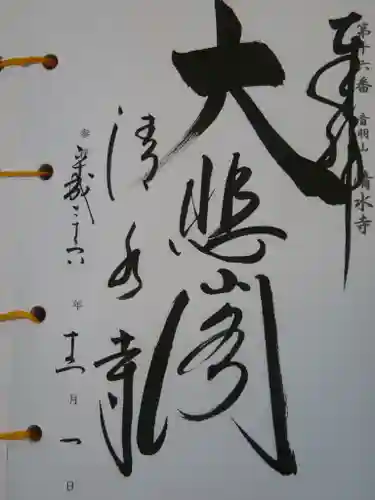 第十六番 音羽山 清水寺
奉拝
大悲閣
清水寺
平成二十六年十二月一日